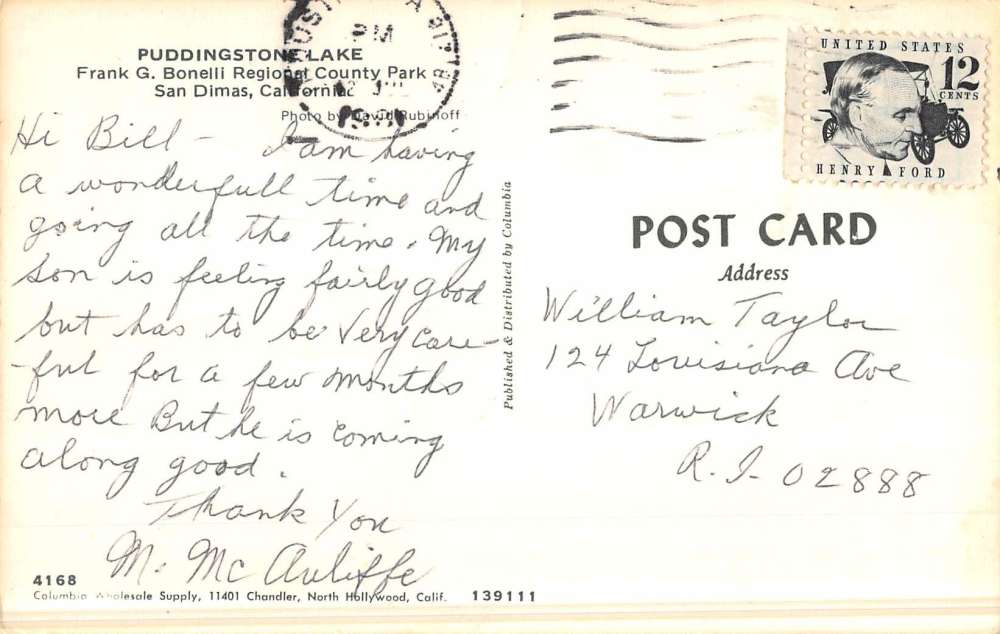 PUDDINGSTONE LAKE
Frank G. Bonelli Regional County Park
San Dimas, California
Photo by David Rubinoff
Hi Bill - I am having
a wonderfull time and
going all the time. My
son is feeling fairly good
but has to be very care-
ful for a few months
more But he is coming
along good.
Thank You
M. Mc Auliffe
4168
Columbia Wholesale Supply, 11401 Chandler, North Hollywood, Calif. 139111
Published & Distributed by Columbia
PM
UNITED STATES
12
CENTS
HENRY FORD
POST CARD
Address
William Taylor
124 Louisiana Ave
Warwick
R.I. 02888